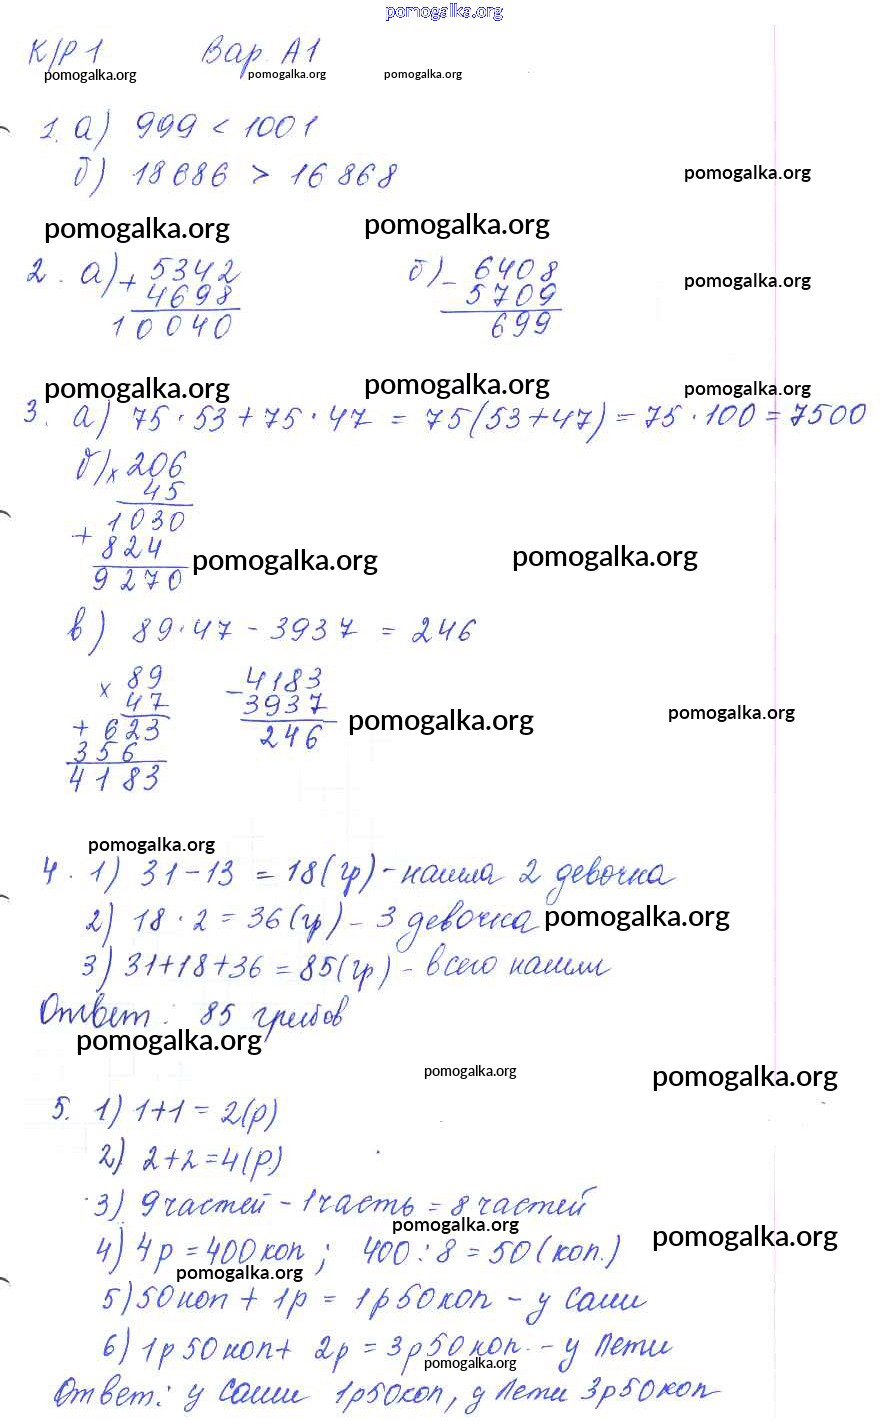 pomogalka.org
К/Р 1 Вар. А1
pomogalka.org pomogalka.org pomogalka.org
1. а) 999 < 1001
б) 18686 > 16868 pomogalka.org
pomogalka.org pomogalka.org
2. а) + 5342 б) - 6408
4698 5709 pomogalka.org
10040 699
pomogalka.org pomogalka.org pomogalka.org
3. а) 75 · 53 + 75 · 47 = 75(53+47) = 75 · 100 = 7500
б) x 206
45
1030
+ 824
pomogalka.org pomogalka.org
9270
в) 89·47 - 3937 = 246
x 89 - 4183
47 3937
+ 623 246 pomogalka.org pomogalka.org
356
4183
pomogalka.org
4. 1) 31-13 = 18(гр) - нашла 2 девочка
2) 18 · 2 = 36(гр) - 3 девочка pomogalka.org
3) 31+18+36 = 85(гр) - всего нашли
Ответ: 85 грибов
pomogalka.org
pomogalka.org pomogalka.org
5. 1) 1+1 = 2(р)
2) 2+2=4(р)
3) 9 частей - 1 часть = 8 частей
pomogalka.org pomogalka.org
4) 4р = 400 коп ; 400 : 8 = 50 (коп.)
pomogalka.org
5) 50 коп + 1р = 1р 50 коп - у Саши
6) 1р 50 коп + 2р = 3р 50 коп. - у Пети
pomogalka.org
Ответ: у Саши 1р50коп, у Пети 3р50коп